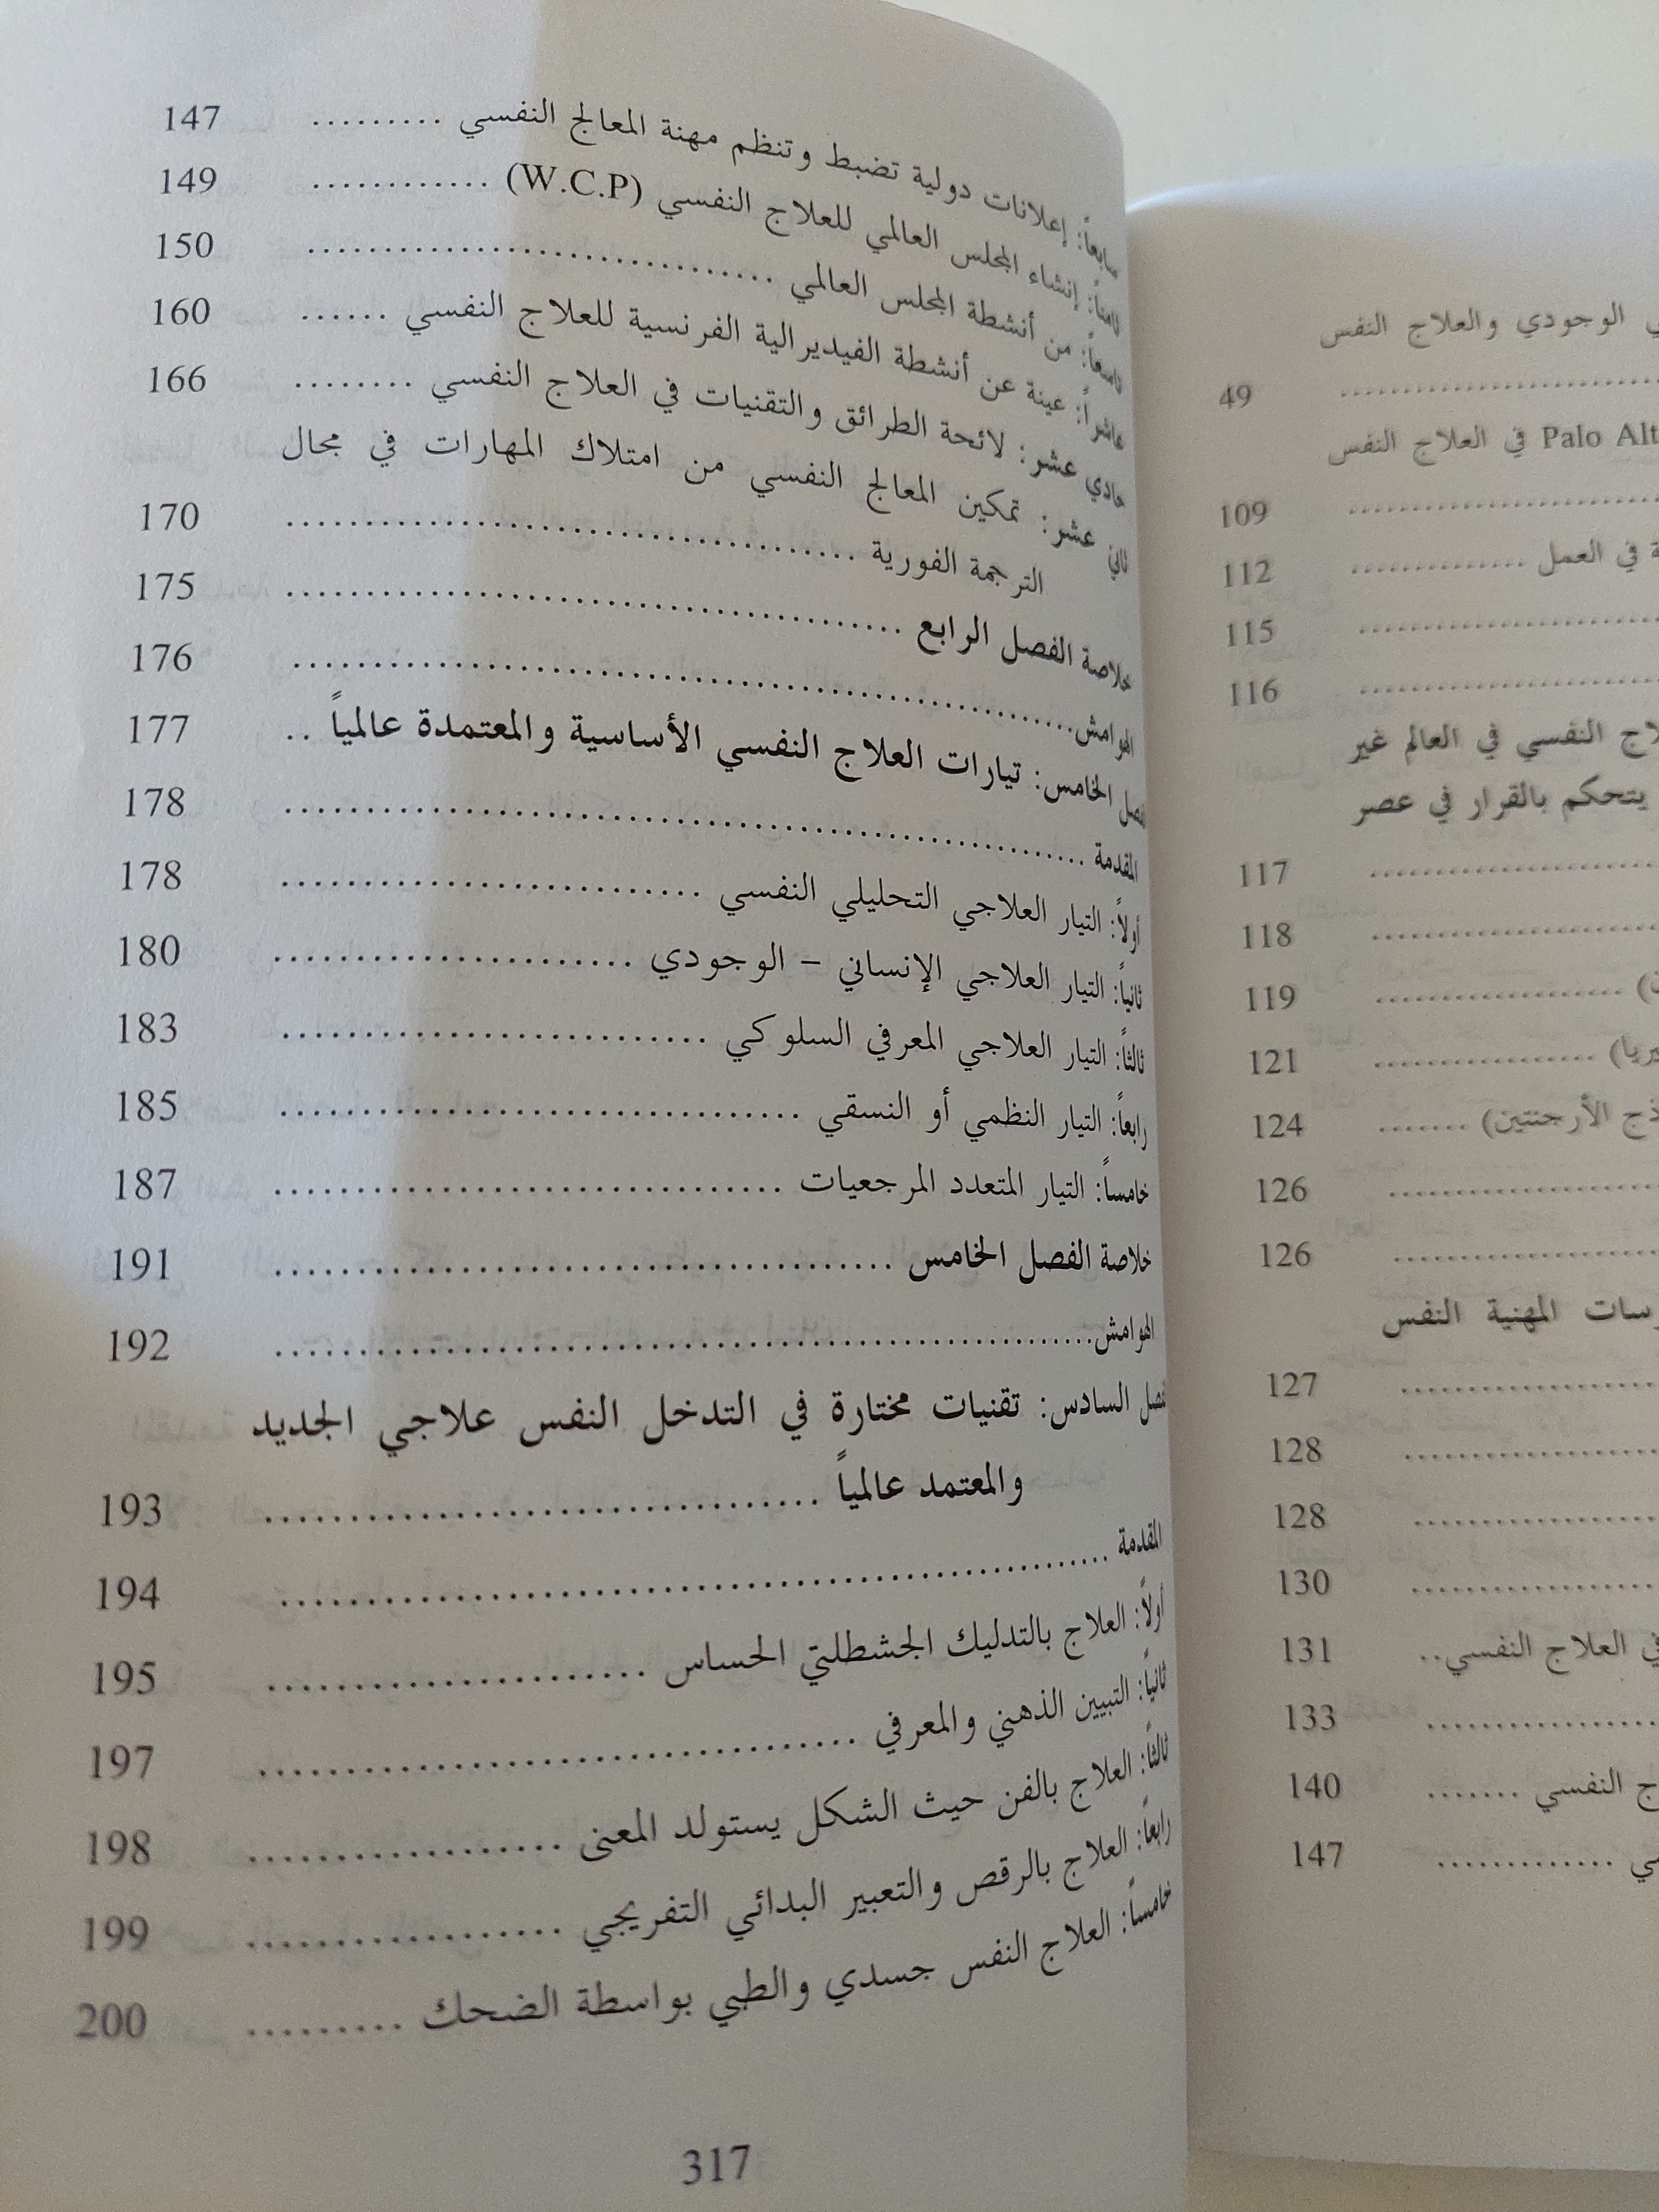 ي الوجودي والعلاج النفس
49 ..............................
Palo Alt في العلاج النفس
109 ..............................
ة في العمل .............. 112
115 ..............................
116 ..............................
لاج النفسي في العالم غير
يتحكم بالقرار في عصر
117 ..............................
118 ..............................
119 ..............................
يريا) ................ 121
ذج الأرجنتين) ....... 124
126 ..............................
126 ..............................
رسات المهنية النفس
127 ..............................
128 ..............................
128 ..............................
130 ..............................
في العلاج النفسي.. 131
133 ..............................
ج النفسي ....... 140
مي ............. 147
سابعاً: إعلانات دولية تضبط وتنظم مهنة المعالج النفسي ......... 147
ثامناً: إنشاء المجلس العالمي للعلاج النفسي (W.C.P) ............ 149
تاسعاً: من أنشطة المجلس العالمي .............................. 150
عاشراً: عينة عن أنشطة الفيديرالية الفرنسية للعلاج النفسي ...... 160
حادي عشر: لائحة الطرائق والتقنيات في العلاج النفسي ........ 166
ثاني عشر: تمكين المعالج النفسي من امتلاك المهارات في مجال
الترجمة الفورية .............................. 170
خلاصة الفصل الرابع .............................. 175
الهوامش.............................. 176
فصل الخامس: تيارات العلاج النفسي الأساسية والمعتمدة عالمياً .. 177
المقدمة .............................. 178
أولاً: التيار العلاجي التحليلي النفسي .............................. 178
ثانياً: التيار العلاجي الإنساني – الوجودي .......................... 180
ثالثاً: التيار العلاجي المعرفي السلوكي .............................. 183
رابعاً: التيار النظمي أو النسقي .............................. 185
خامساً: التيار المتعدد المرجعيات .............................. 187
خلاصة الفصل الخامس .............................. 191
الهوامش.............................. 192
فصل السادس: تقنيات مختارة في التدخل النفس علاجي الجديد
والمعتمد عالمياً .............................. 193
المقدمة .............................. 194
أولاً: العلاج بالتدليك الجشطلتي الحساس ........................... 195
ثانياً: التبيين الذهني والمعرفي .............................. 197
ثالثاً: العلاج بالفن حيث الشكل يستولد المعنى .................. 198
رابعاً: العلاج بالرقص والتعبير البدائي التفريجي .................. 199
خامساً: العلاج النفس جسدي والطبي بواسطة الضحك ......... 200
317